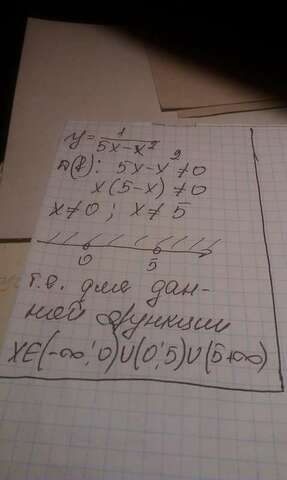 y = 1/(5x-x²)
D(f): 5x-x² ≠ 0
x(5-x) ≠ 0
x≠0; x≠5
0 5
т.е. для дан-
ной функции
x∈(-∞;0)∪(0;5)∪(5+∞)